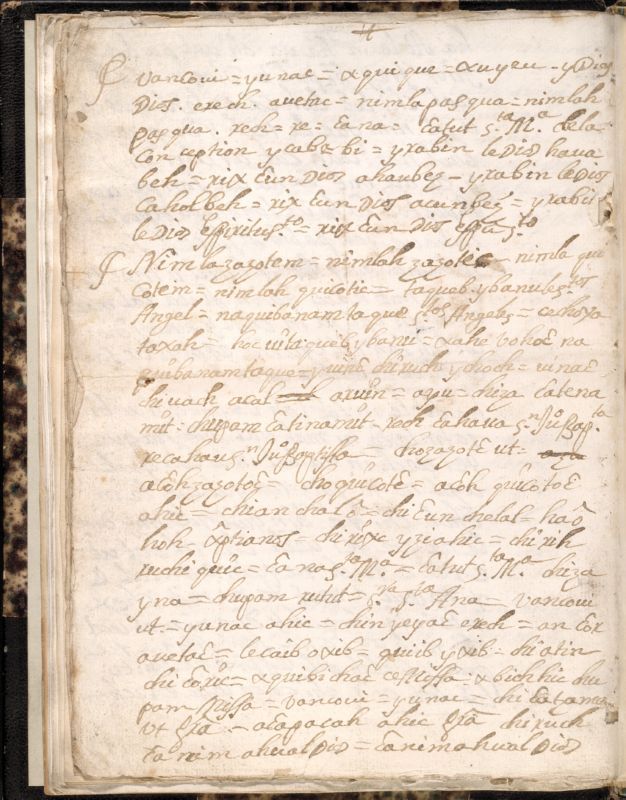 vancoui = yunac = xquique = xuyeu - y Dios
Dios. erech. auetac = nimla pasqua = nimlah
pasqua. rech = re = cana = catut S.ta M.a de la
Conception y cabe bi = y rabin le Dios haua
beh = rix cun Dios ahaubez - y rabin le Dios
Cahol beh = rix cun Dios acunbez = y rabin
le Dios Espiritu S.to = rix cun Dios Espu S.to
Nimla zazotem = nimlah zazotic nimla qui
cotem = nimlah quicotic = taqueb y banu le S.tos
Angel = naquibanam taque S.tos Angeles = cechoya
taxah = hoc uita queb y banu = xahe vohoc na
quibanam taque = y uinc chiruch y choch = uinac
chi uach acal = aruin = azu = chiza catena
mit = chupam catinamit - rech cahaua S.n Ju.o Bap.ta
recahau S.n Ju.o Baptissa = chozazotc ut =
acoh zazotoc = choquicotc = acoh quicotoc
ahic = chi anchal = chi cun chelal = hao
hoh xptianos = chirixc yzcahic = chi rih
ruchi quic = cana S.ta M.a = catut S.ta M.a chiza
y na = chupam rutut = S.ra S.ta Ana = vancoui
ut = yunac ahic = chin yeyac erech = an cox
auetac = le caib oxib = quiib yxib = chi atin
chi coxic = xquibi chac ce Missa = xbichhic chu
pam Missa = vancoui = yunac = chi catama
ut gra - acapacah ahic gra chi ruch
ta nim ahual Dios = canim ahual Dios